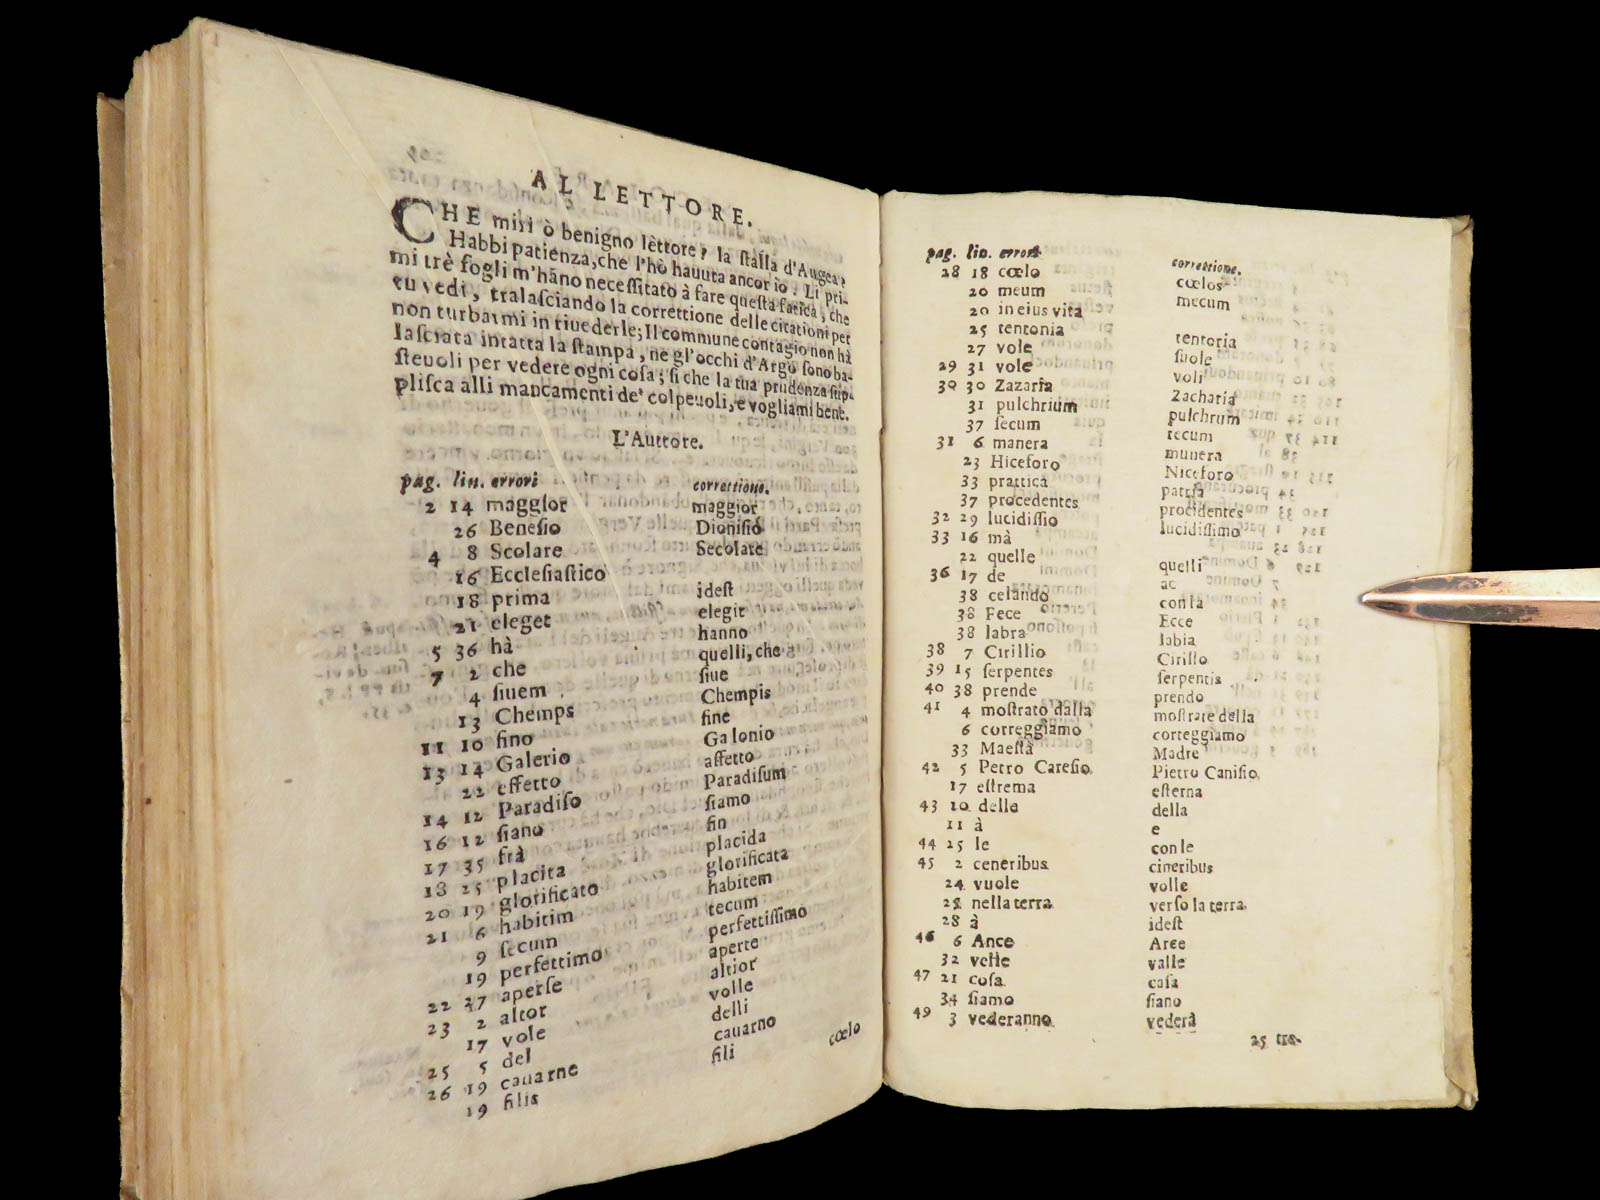 AL LETTORE.
CHE miri ò benigno lèttore? la stalla d'Augea?
Habbi patienza, che l'hò hauuta ancor io. Li pri-
mi trè fogli m'hāno necessitato à fare questa fatica, che
tu vedi, tralasciando la correttione delle citationi per
non turbarmi in riuederle; Il commune contagio non hà
lasciata intatta la stampa, ne gl'occhi d'Argo sono ba-
steuoli per vedere ogni cosa; si che la tua prudenza sup-
plisca alli mancamenti de' colpeuoli, e vogliami bene.
L'Auttore.
pag. lin. errori correttione.
2 14 maggior maggior
26 Benesio Dionisio
4 8 Scolare Secolare
16 Ecclesiastico
18 prima idest
21 eleget elegit
5 36 hà hanno
7 2 che quelli, che
4 siuem siue
13 Chemps Chempis
11 10 fino fine
13 14 Galerio Galonio
22 effetto affetto
14 12 Paradiso Paradisum
16 12 siano siamo
17 35 frà fin
18 25 placita placida
20 19 glorificato glorificata
21 6 habitim habitem
9 secum tecum
19 perfettimo perfettissimo
22 27 aperse aperte
23 2 altor altior
17 vole volle
25 5 del delli
26 19 cauarne cauarno
19 filis fili
cœlo
pag. lin. errori correttione.
28 18 cœlo cœlos
20 meum mecum
20 in eius vita
25 tentonia tentoria
27 vole suole
29 31 vole voli
30 30 Zazaria Zacharia
31 pulchrium pulchrum
37 secum tecum
31 6 manera munera
23 Hiceforo Niceforo
33 prattica patria
37 procedentes procidentes
32 29 lucidissio lucidissimo
33 16 mà
22 quelle quelli
36 17 de ac
38 celando con la
38 Fece Ecce
38 labra labia
38 7 Cirillio Cirillo
39 15 serpentes serpentis
40 38 prende prendo
41 4 mostrato dalla mostrate della
6 correggiamo corteggiamo
33 Maestà Madre
42 5 Petro Caresio Pietro Canisio
17 estrema esterna
43 10 delle della
11 à e
44 25 le con le
45 2 ceneribus cineribus
24 vuole volle
25 nella terra verso la terra
28 à idest
46 6 Ance Arce
32 velle valle
47 21 cosa casa
34 siamo siano
49 3 vederanno vederà
25 tra-